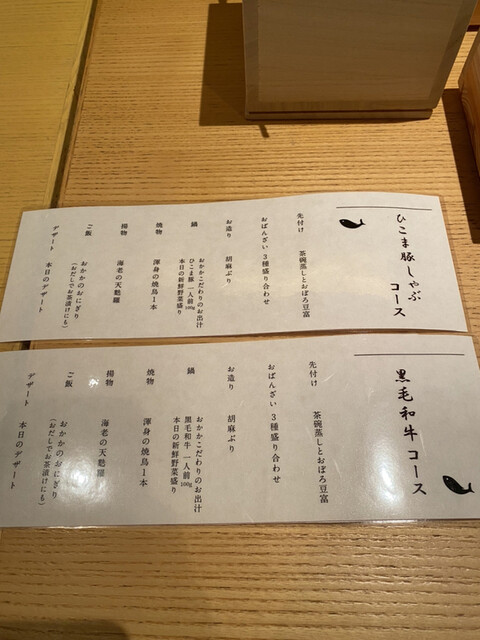 ひこま豚しゃぶ
コース
先付け　茶碗蒸しとおぼろ豆富
おばんざい３種盛り合わせ
お造り　胡麻ぶり
鍋　おかかこだわりのお出汁
ひこま豚 一人前100g
本日の新鮮野菜盛り
焼物　渾身の焼鳥１本
揚物　海老の天麩羅
ご飯　おかかのおにぎり
（おだしでお茶漬けにも）
デザート　本日のデザート
黒毛和牛コース
先付け　茶碗蒸しとおぼろ豆富
おばんざい３種盛り合わせ
お造り　胡麻ぶり
鍋　おかかこだわりのお出汁
黒毛和牛 一人前100g
本日の新鮮野菜盛り
焼物　渾身の焼鳥１本
揚物　海老の天麩羅
ご飯　おかかのおにぎり
（おだしでお茶漬けにも）
デザート　本日のデザート